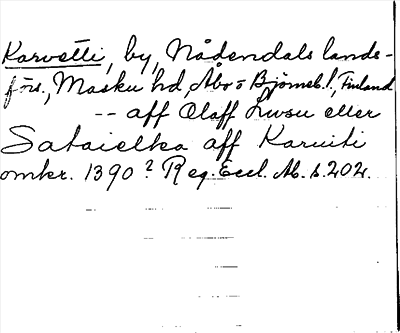 Karvetti, by, Nådendals lands-
förs., Masku hd, Åbo o Björneb. l., Finland
-- aff Olaff Luosu eller
Sataielka aff Karuiti
omkr. 1390? Reg. Eccl. Ab. s. 202.